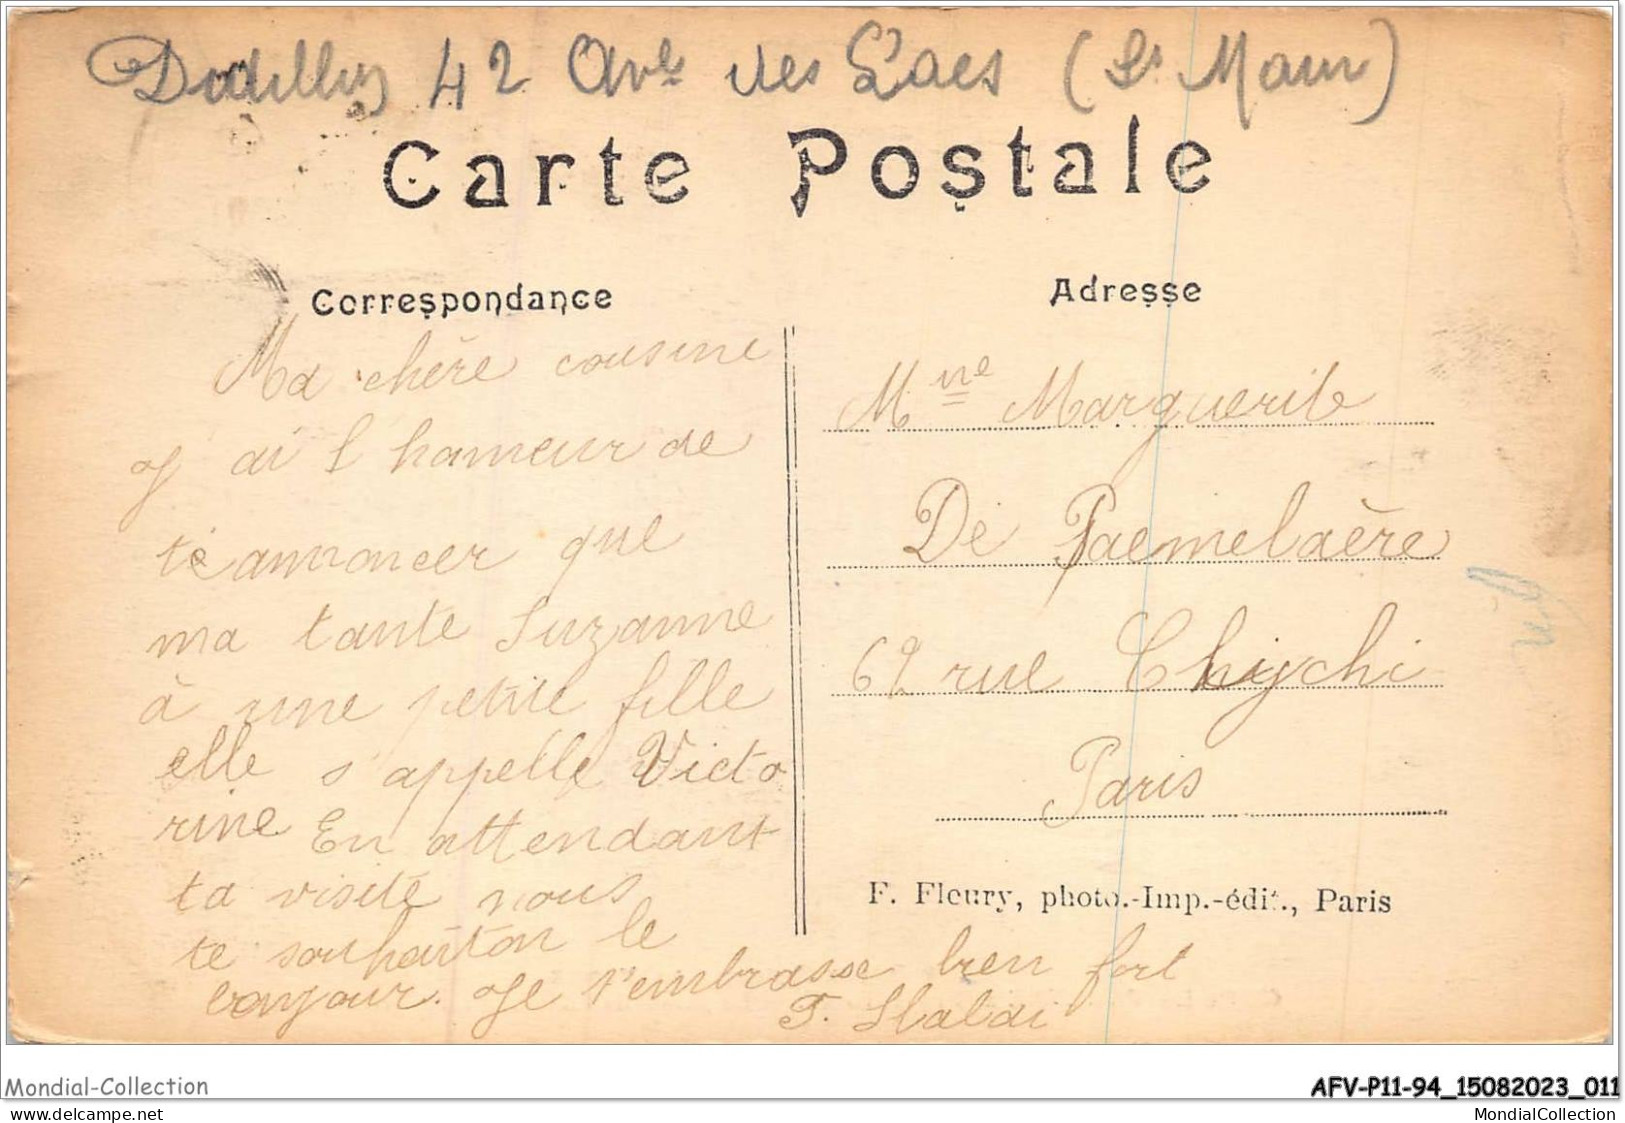 42 Ave des Lacs (St Maur)
Carte Postale
Correspondance
Adresse
Ma chère cousine
j ai l honneur de
te annoncer que
ma tante Suzanne
à une petite fille
elle s'appelle Victo
rine En attendant
ta visite nous
te souhaiton le
bonjour. Je t'embrasse bien fort
Mlle Marguerite
De Paemelaère
62 rue
Paris
F. Fleury, photo.-Imp.-édit., Paris
Mondial-Collection
https://www.delcampe.net
AFV-P11-94_15082023_011
MondialCollection